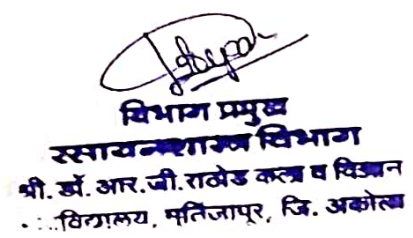 विभाग प्रमुख
रसायनशास्त्र विभाग
श्री. डॉ. आर. जी. राठोड कला व विज्ञान
विद्यालय, मुर्तिजापूर, जि. अकोला